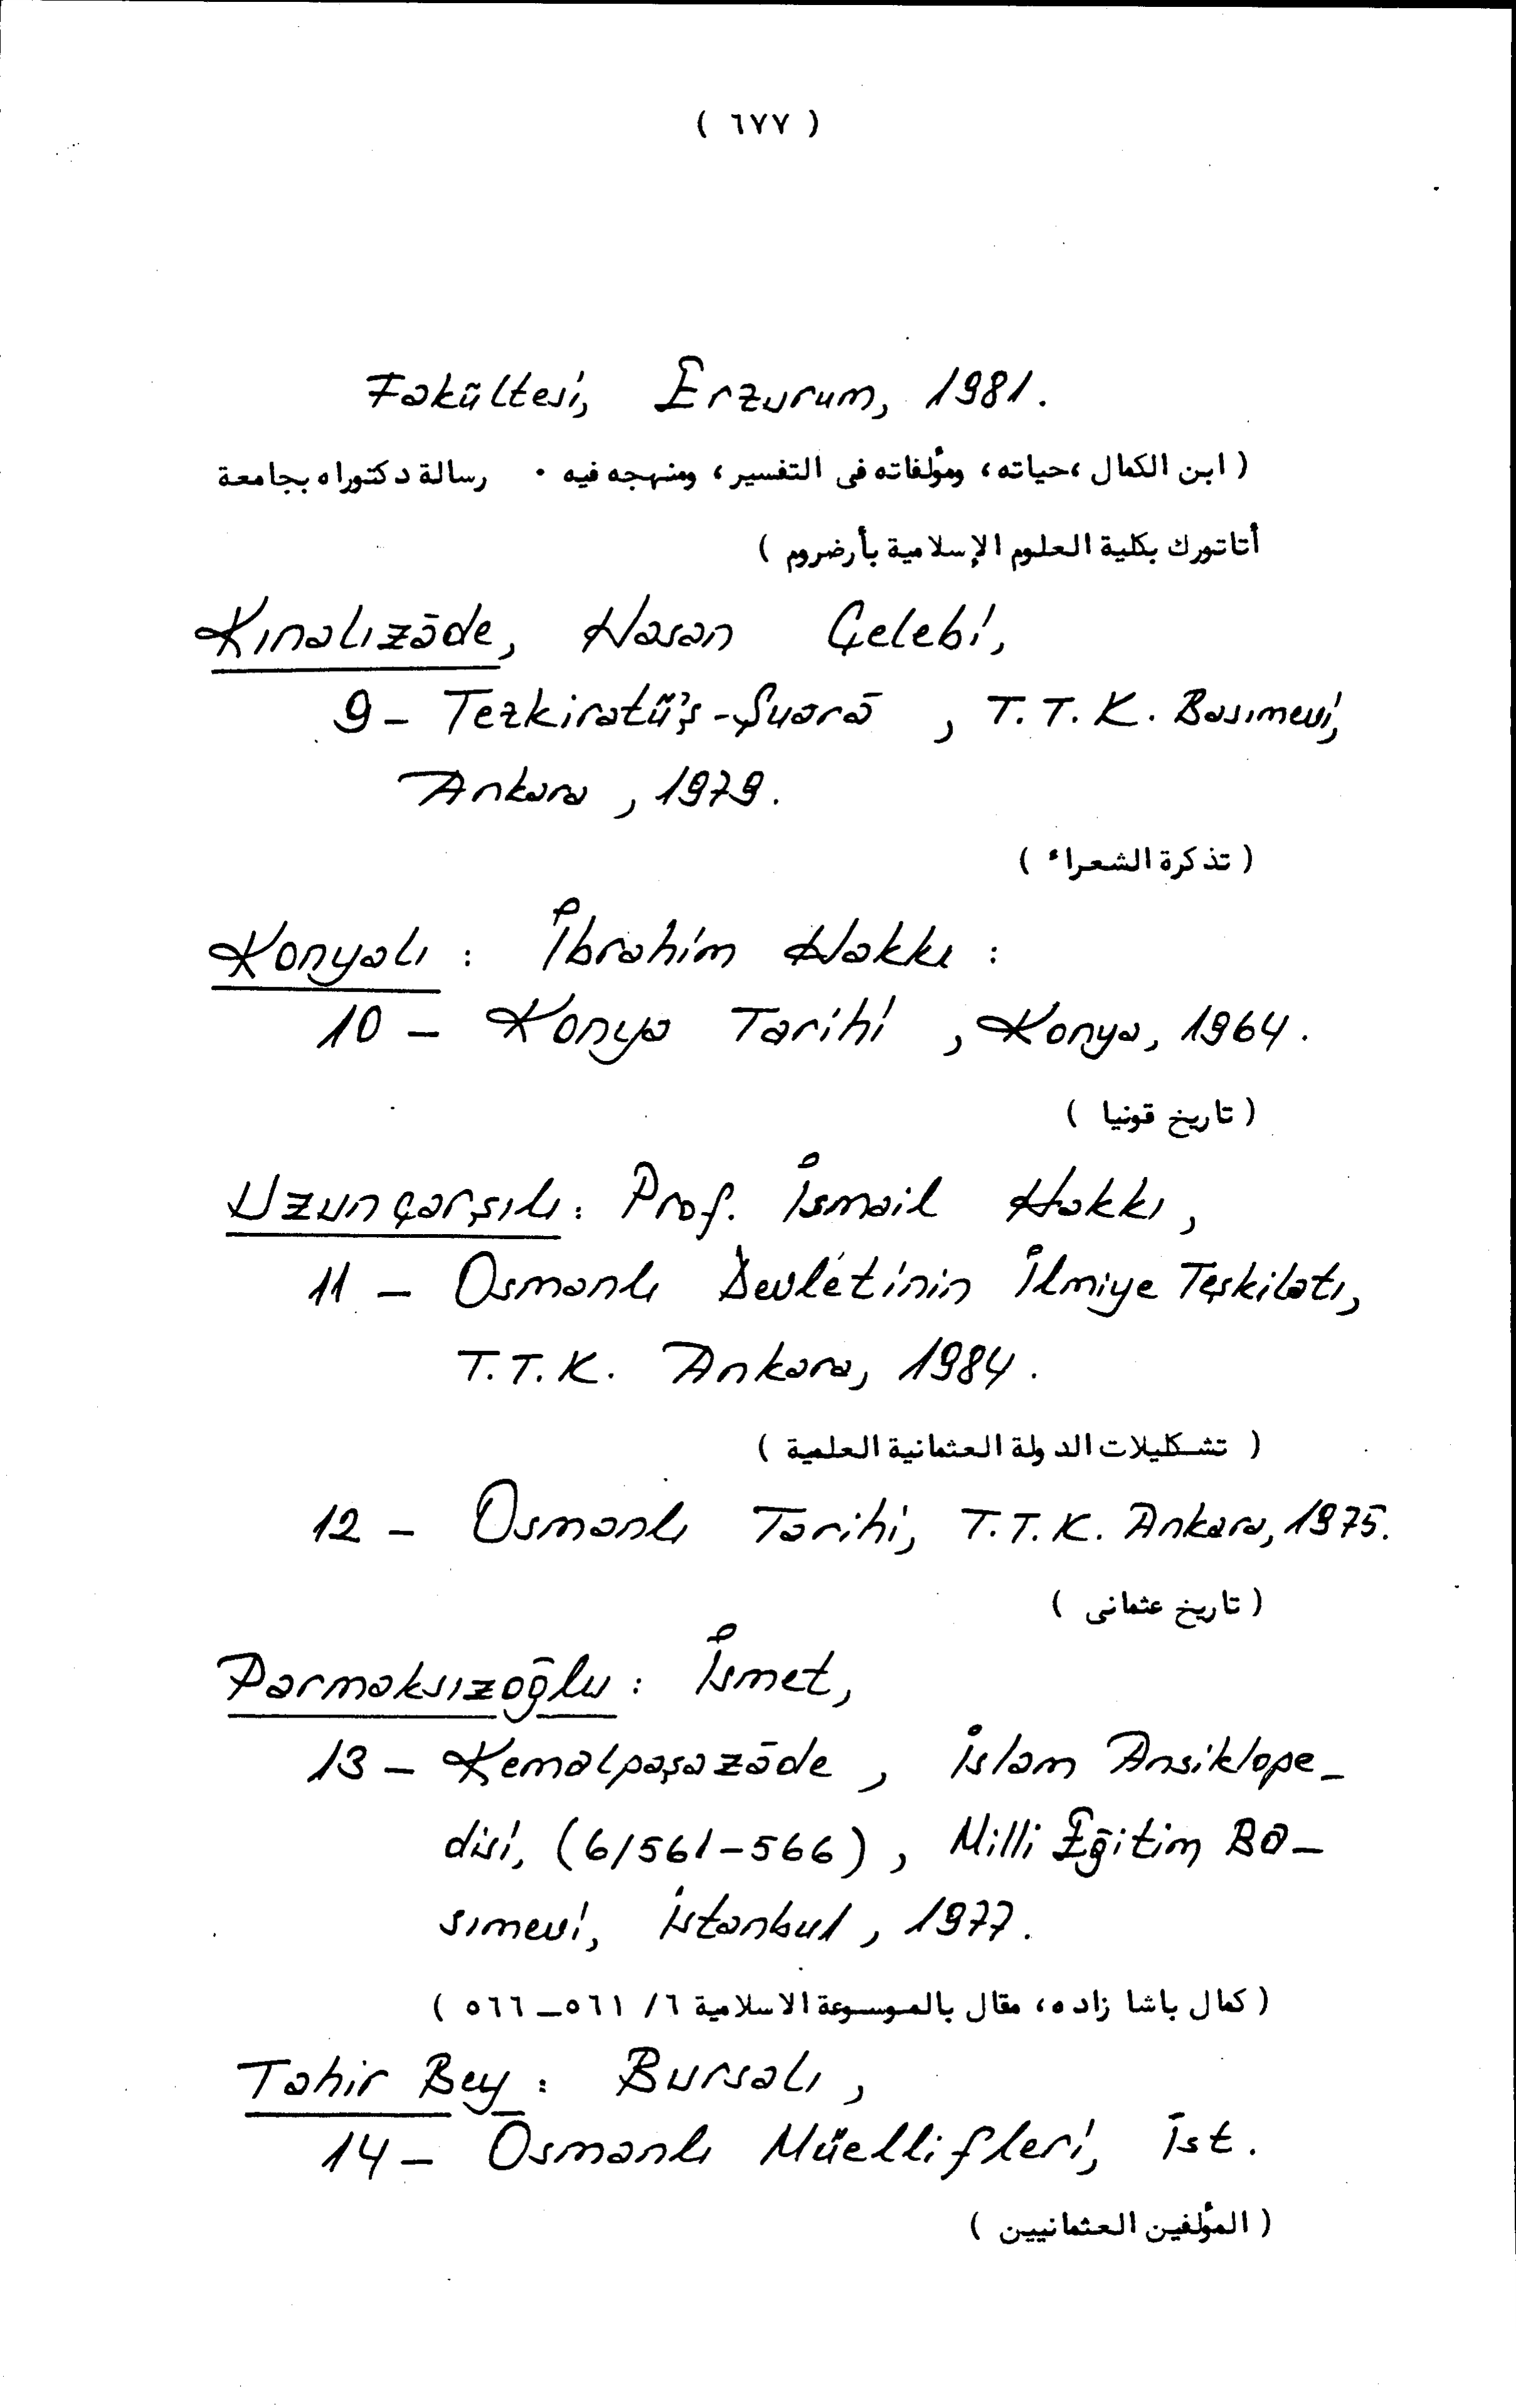 ( ٦٧٧ )
Fakültesi, Erzurum, 1981.
( ابن الكمال ،حياته، ومؤلفاته فى التفسير، ومنهجه فيه ٠ رسالة دكتوراه بجامعة
أتاتورك بكلية العلوم الإسلامية بأرضروم )
Kınalızāde, Hasan Çelebi,
9 - Tezkiratü'ş-Şuarā , T.T.K. Basımevi,
Ankara , 1979.
( تذكرة الشعراء )
Konyalı : İbrahim Hakkı :
10 - Konya Tarihi , Konya, 1964.
( تاريخ قونيا )
Uzunçarşılı : Prof. İsmail Hakkı ,
11 - Osmanlı Devletinin İlmiye Teşkilatı,
T.T.K. Ankara, 1984.
( تشكليلات الدولة العثمانية العلمية )
12 - Osmanlı Tarihi, T.T.K. Ankara, 1975.
( تاريخ عثمانى )
Parmaksızoğlu : İsmet,
13 - Kemalpaşazāde , İslam Ansiklope-
disi, (6/561-566) , Milli Eğitim Ba-
sımevi, İstanbul , 1977.
( كمال باشا زاده، مقال بالموسوعة الاسلامية ٦/ ٥٦١ــ٥٦٦ )
Tahir Bey : Bursalı ,
14 - Osmanlı Müellifleri, İst.
( المؤلفين العثمانيين )